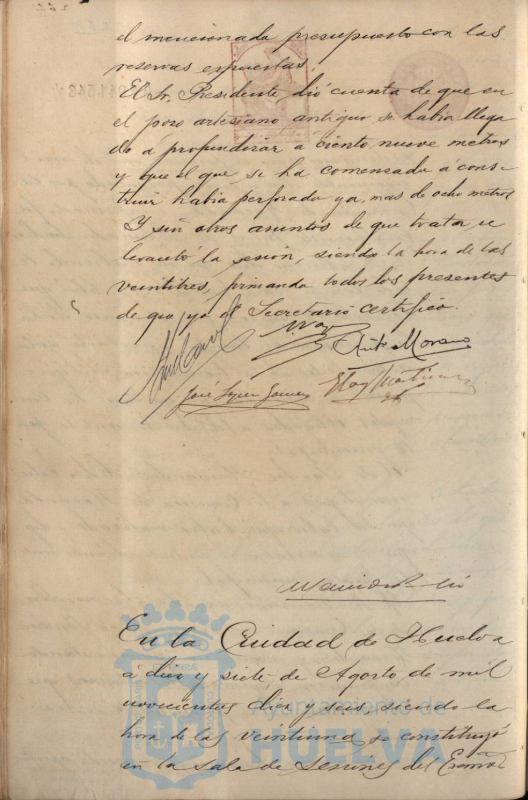 el mencionada presupuesto con las
reservas expuestas.
El Sr. Presidente dió cuenta de que en
el pozo artesiano antiguo se habia llega
do a profundizar á ciento nueve metros
y que el que se ha comenzado á cons-
truir habia perforado ya, mas de ocho metros
Y sin otros asuntos de que tratar se
levantó la sesión, siendo la hora de las
veintitres, firmando todos los presentes
de que yo el Secretario certifico.
Antº Moreno
José López Gomez
En la Ciudad de Huelva
a diez y siete de Agosto de mil
novecientos diez y seis, siendo la
hora de las veintiuna se constituyó
en la sala de Sesiones del Excmo
Ayuntamiento de
HUELVA